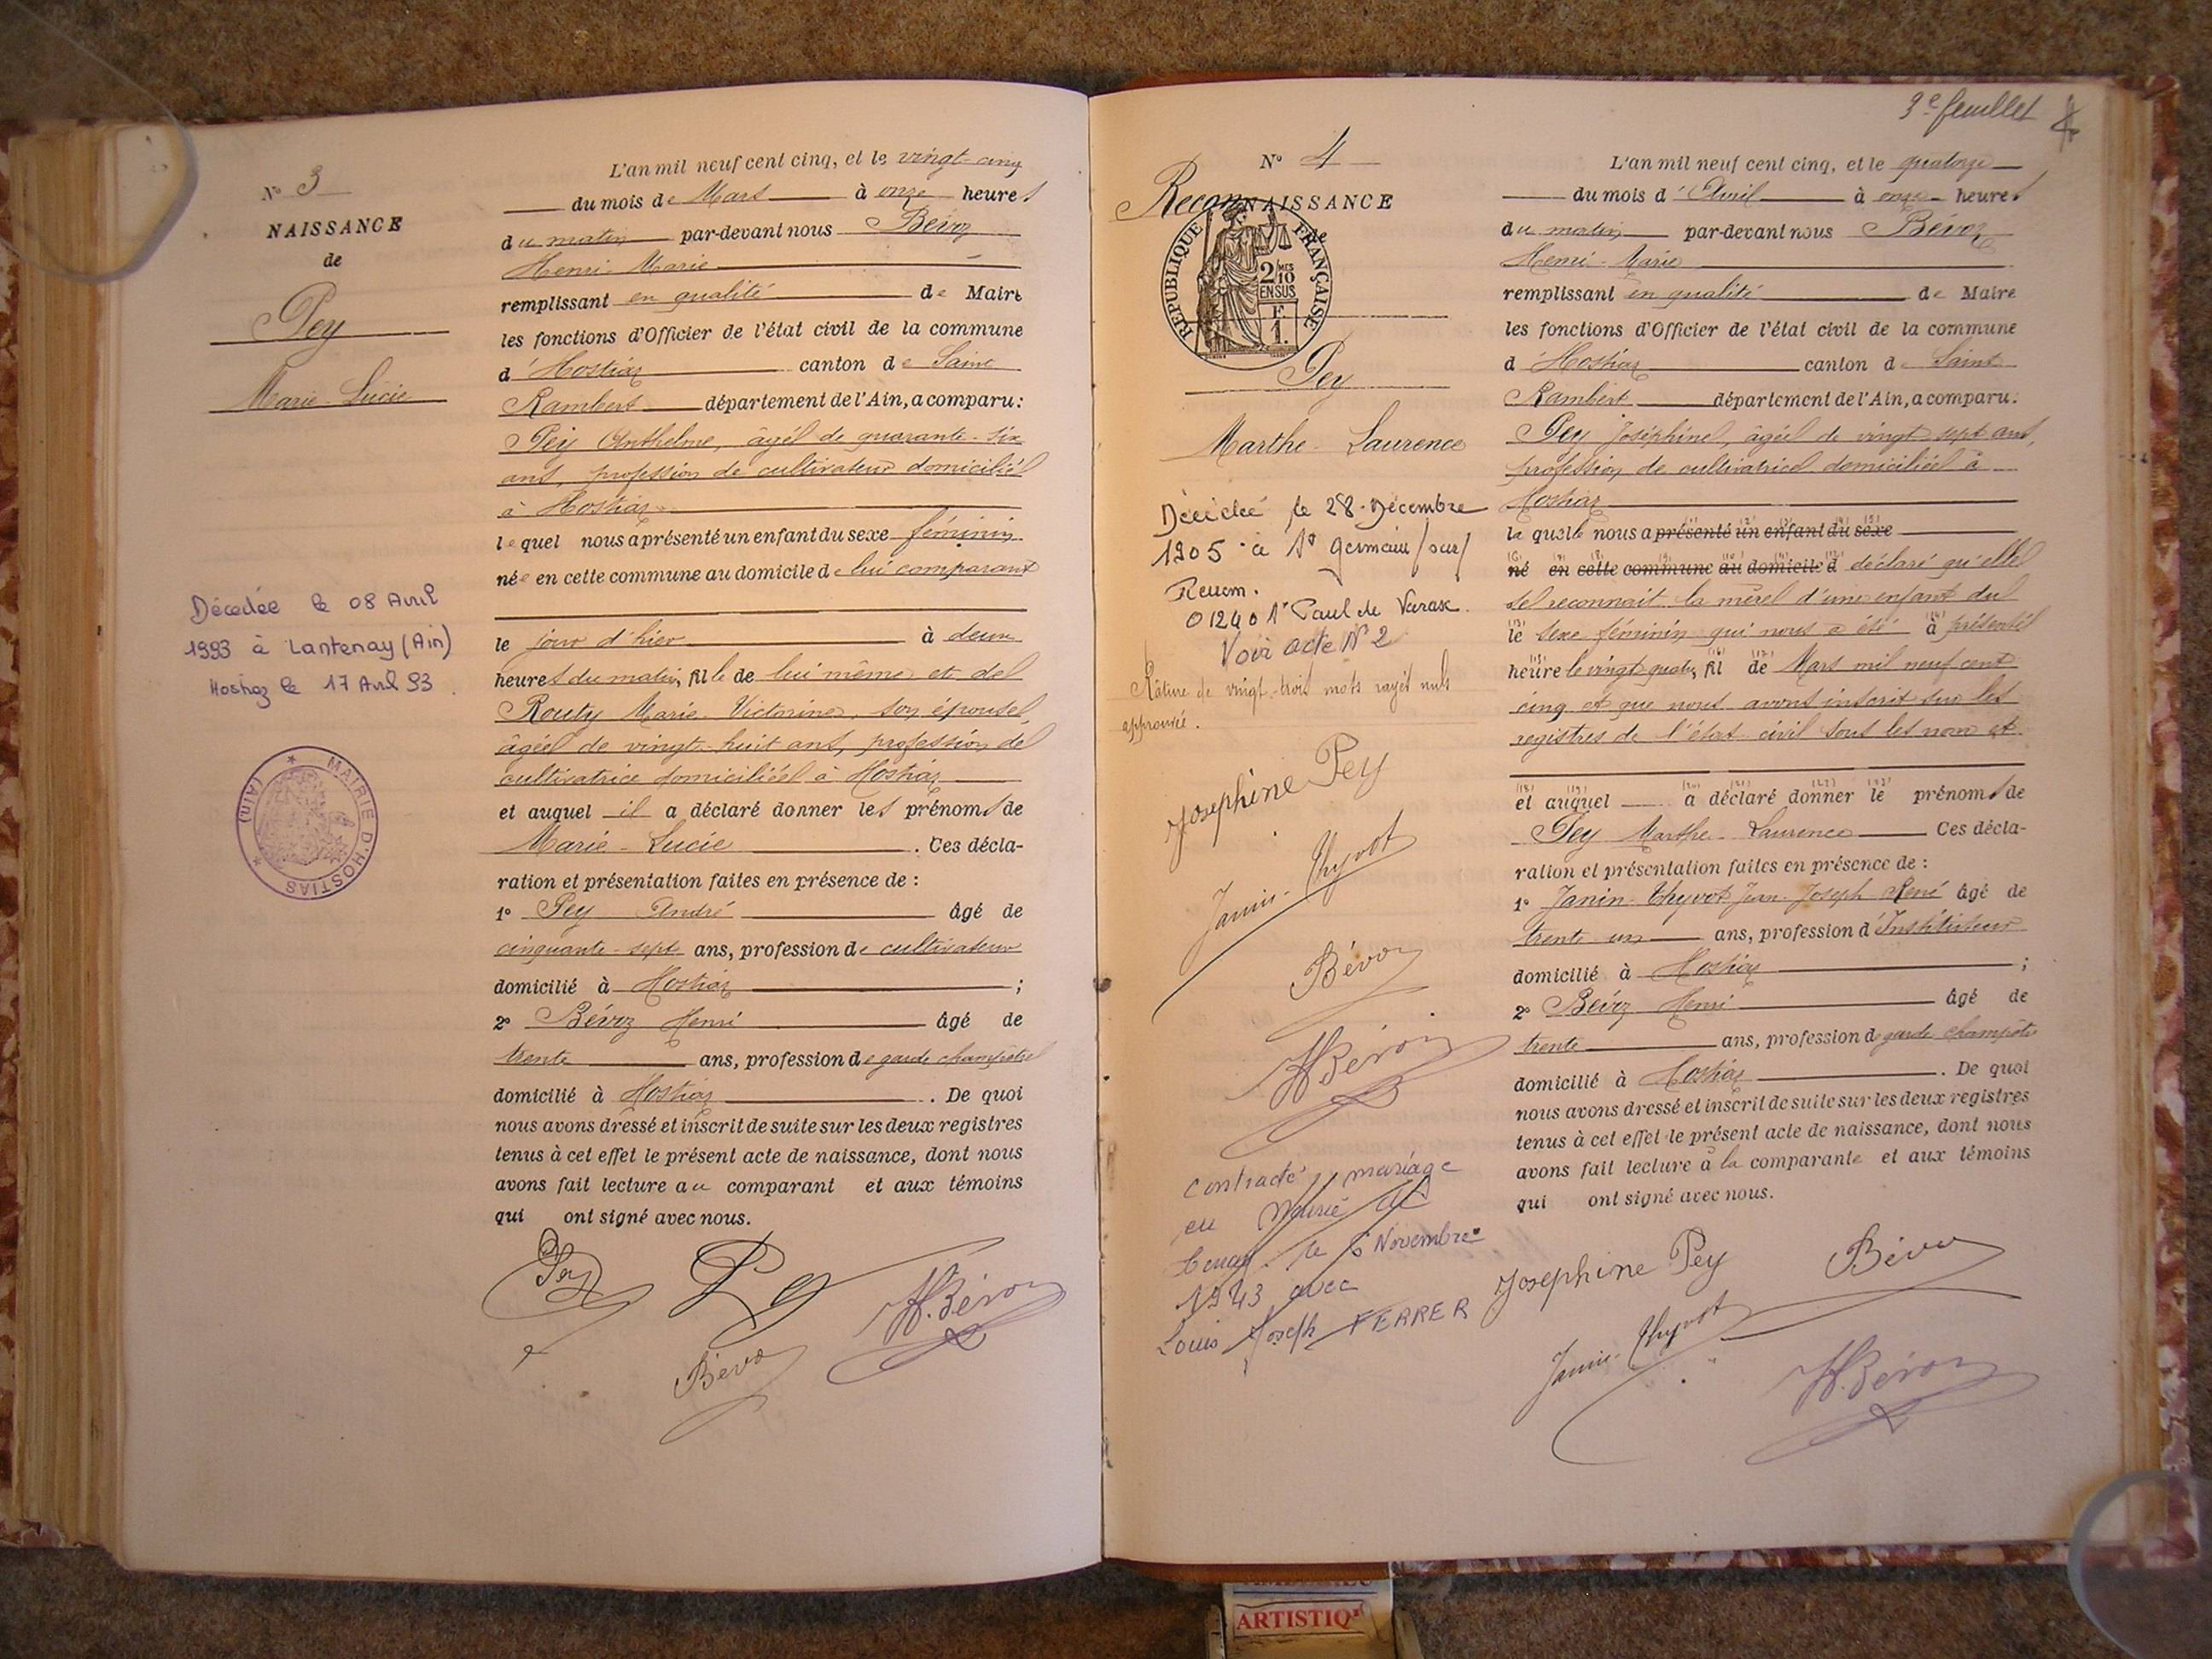 N° 3
NAISSANCE
de
Pey
Marie-Lucie
Décédée le 08 Avril
1993 à Lantenay (Ain)
Hostiaz le 17 Avril 93.
MAIRIE D'HOSTIAS
(AIN)
L'an mil neuf cent cinq, et le vingt-cinq
du mois de Mars à onze heures
du matin par-devant nous Bévoz
Henri-Marie
remplissant en qualité de Maire
les fonctions d'Officier de l'état civil de la commune
d'Hostiaz canton de Saint
Rambert département de l'Ain, a comparu:
Pey Anthelme, âgé de quarante-six
ans, profession de cultivateur domicilié
à Hostiaz
lequel nous a présenté un enfant du sexe féminin
née en cette commune au domicile de lui comparant
le jour d'hier à deux
heures du matin, fille de lui même et de
Routy Marie-Victorine, son épouse,
âgée de vingt-huit ans, profession de
cultivatrice domiciliée à Hostiaz
et auquel il a déclaré donner les prénoms de
Marie-Lucie. Ces décla-
ration et présentation faites en présence de :
1° Pey André âgé de
cinquante-sept ans, profession de cultivateur
domicilié à Hostiaz ;
2° Bévoz Henri âgé de
trente ans, profession de garde champêtre
domicilié à Hostiaz. De quoi
nous avons dressé et inscrit de suite sur les deux registres
tenus à cet effet le présent acte de naissance, dont nous
avons fait lecture au comparant et aux témoins
qui ont signé avec nous.
Pey Pey
Bévoz H. Bévoz
3e feuillet
N° 4
ReconNAISSANCE
de
REPUBLIQUE FRANÇAISE
2/10 MES
EN SUS
F
1.
Pey
Marthe-Laurence
Décédée le 28-Décembre
1905 à St Germain/sur/
Renom.
01240 St Paul de Varax.
Voir acte N° 2
Râture de vingt-trois mots rayés nuls
approuvée.
Josephine Pey
Janin-Thyvot
Bévoz
H Bévoz
Contracté mariage
en Mairie de
Tenay le 6 Novembre
1943 avec
Louis Joseph FERRER
L'an mil neuf cent cinq, et le quatorze
du mois d'Avril à onze heures
du matin par-devant nous Bévoz
Henri-Marie
remplissant en qualité de Maire
les fonctions d'Officier de l'état civil de la commune
d'Hostiaz canton de Saint
Rambert département de l'Ain, a comparu:
Pey Joséphine, âgée de vingt-sept ans,
profession de cultivatrice domiciliée à
Hostiaz
laquelle nous a présenté un enfant du sexe
né en cette commune au domicile d déclaré qu'elle
se reconnait la mère d'un enfant du
le sexe féminin qui nous a été à présenté
heure le vingt quatre, fil de Mars mil neuf cent
cinq et que nous avons inscrit sur les
registres de l'état civil sous les nom et
et auquel a déclaré donner le prénoms de
Pey Marthe-Laurence Ces décla-
ration et présentation faites en présence de :
1° Janin-Thyvot Jean-Joseph René âgé de
trente un ans, profession d'Instituteur
domicilié à Hostiaz ;
2° Bévoz Henri âgé de
trente ans, profession de garde champêtre
domicilié à Hostiaz. De quoi
nous avons dressé et inscrit de suite sur les deux registres
tenus à cet effet le présent acte de naissance, dont nous
avons fait lecture à la comparante et aux témoins
qui ont signé avec nous.
Josephine Pey Bévoz
Janin-Thyvot
H. Bévoz
ARTISTIQ